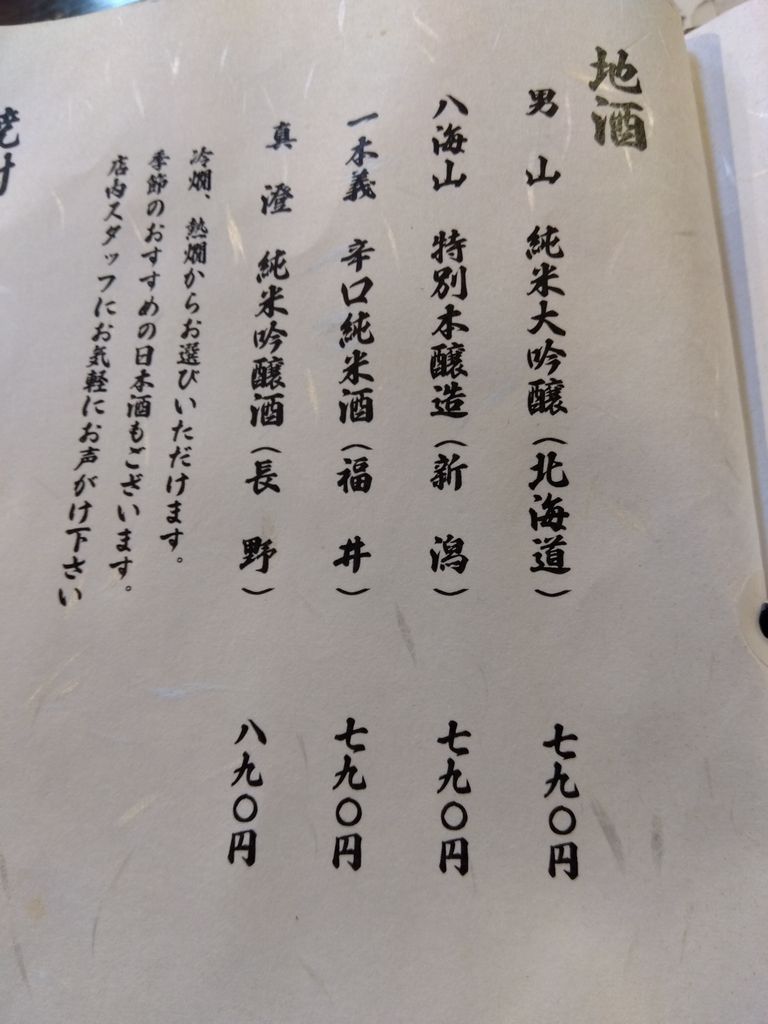 地酒
男山 純米大吟醸(北海道) 七九〇円
八海山 特別本醸造(新潟) 七九〇円
一本義 辛口純米酒(福井) 七九〇円
真澄 純米吟醸酒(長野) 八九〇円
冷燗、熱燗からお選びいただけます。
季節のおすすめの日本酒もございます。
店内スタッフにお気軽にお声がけ下さい